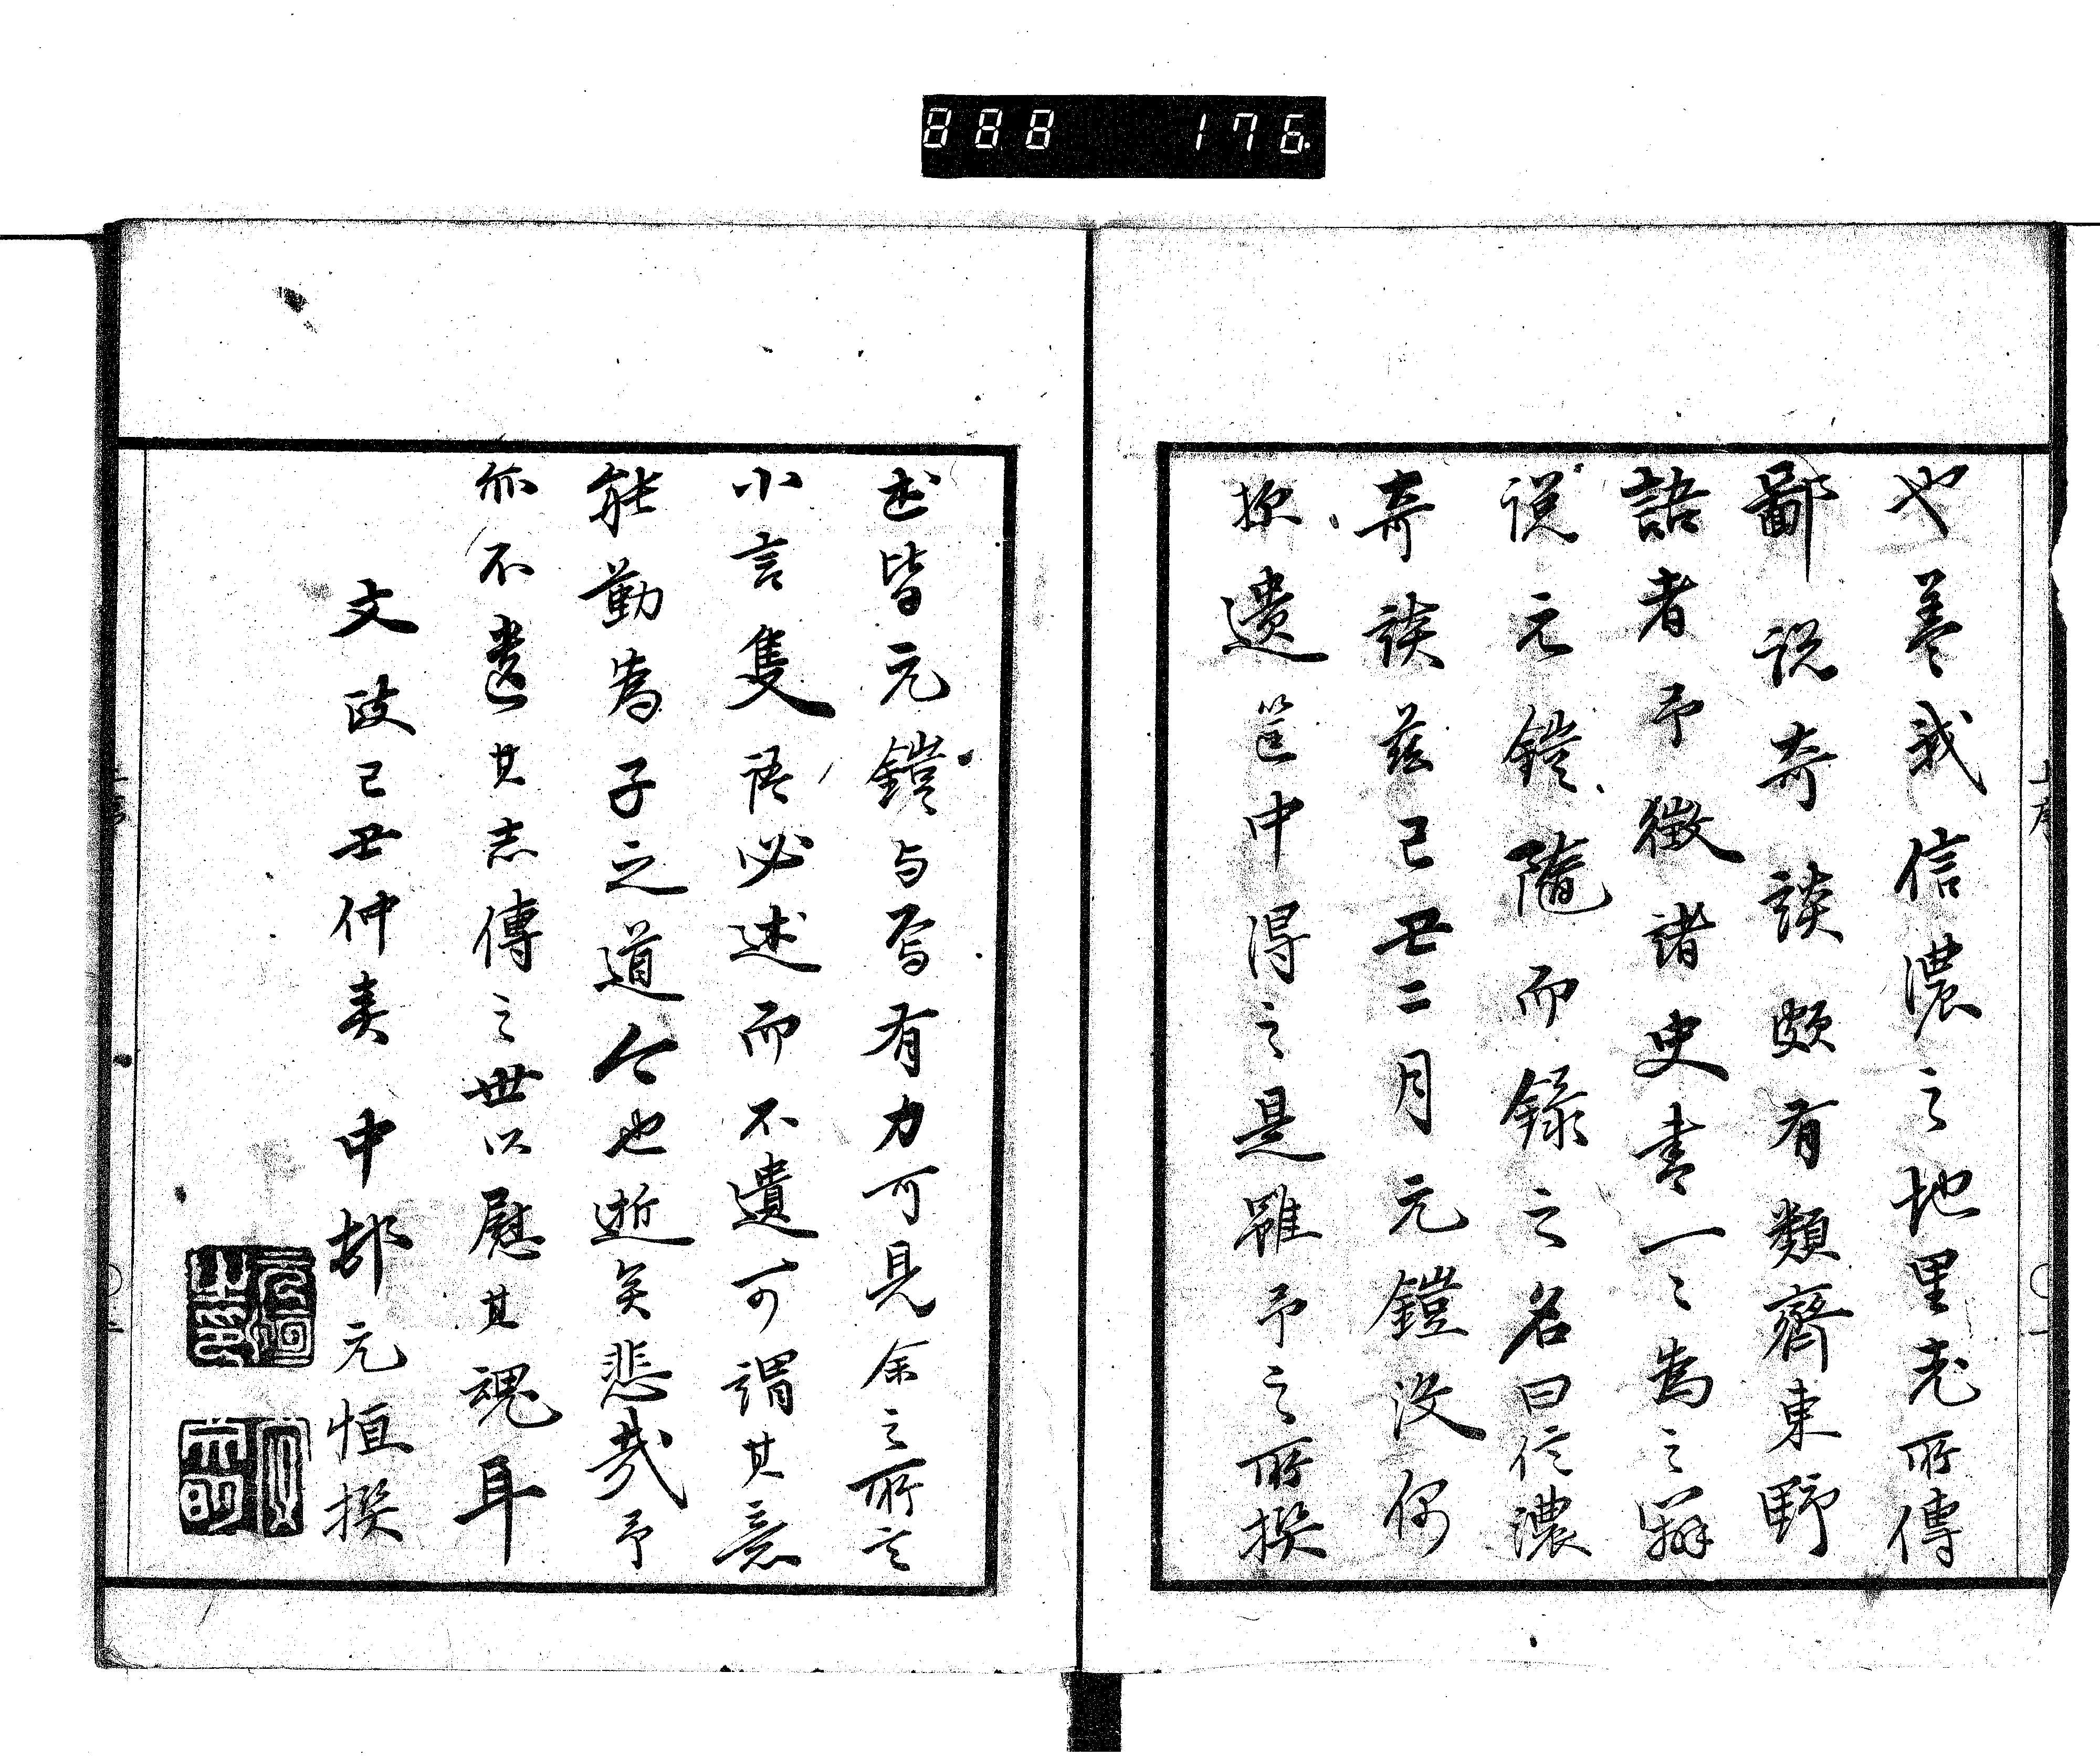 888 176
也蓋我信濃之地里老所傳
鄙説奇談頗有類齊東野
語者予徴諸史書一〻為之辯
説元鎧隨而録之名曰信濃
奇談茲己丑二月元鎧没偶
探遺筐中得之是雖予之所撰
述皆元鎧与焉有力可見余之所言
小言隻語必述而不遺可謂其意
能勤為子之道今也逝矣悲哉予
亦不遺其志傳之世以慰其魂耳
文政己丑仲夏 中邨元恒撰